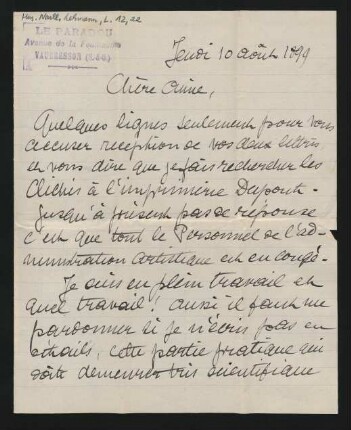 Mus. Nachl. Lehmann, L. 12, 22
LE PARADOU
Avenue de la
VAUCRESSON (S.-&-O.)
Jeudi 10 août 1899
Chère amie,
Quelques lignes seulement pour vous
accuser reception de vos deux lettres
et vous dire que je fais rechercher les
Clichés à l'Imprimerie Dupont -
jusqu'à présent pas de réponse
c'est que tout le Personnel de l'ad-
ministration artistique est en congé -
Je suis en plein travail et
quel travail! aussi il faut me
pardonner si je n'écris pas en
détails, cette partie pratique qui
doit demeurer très scientifique